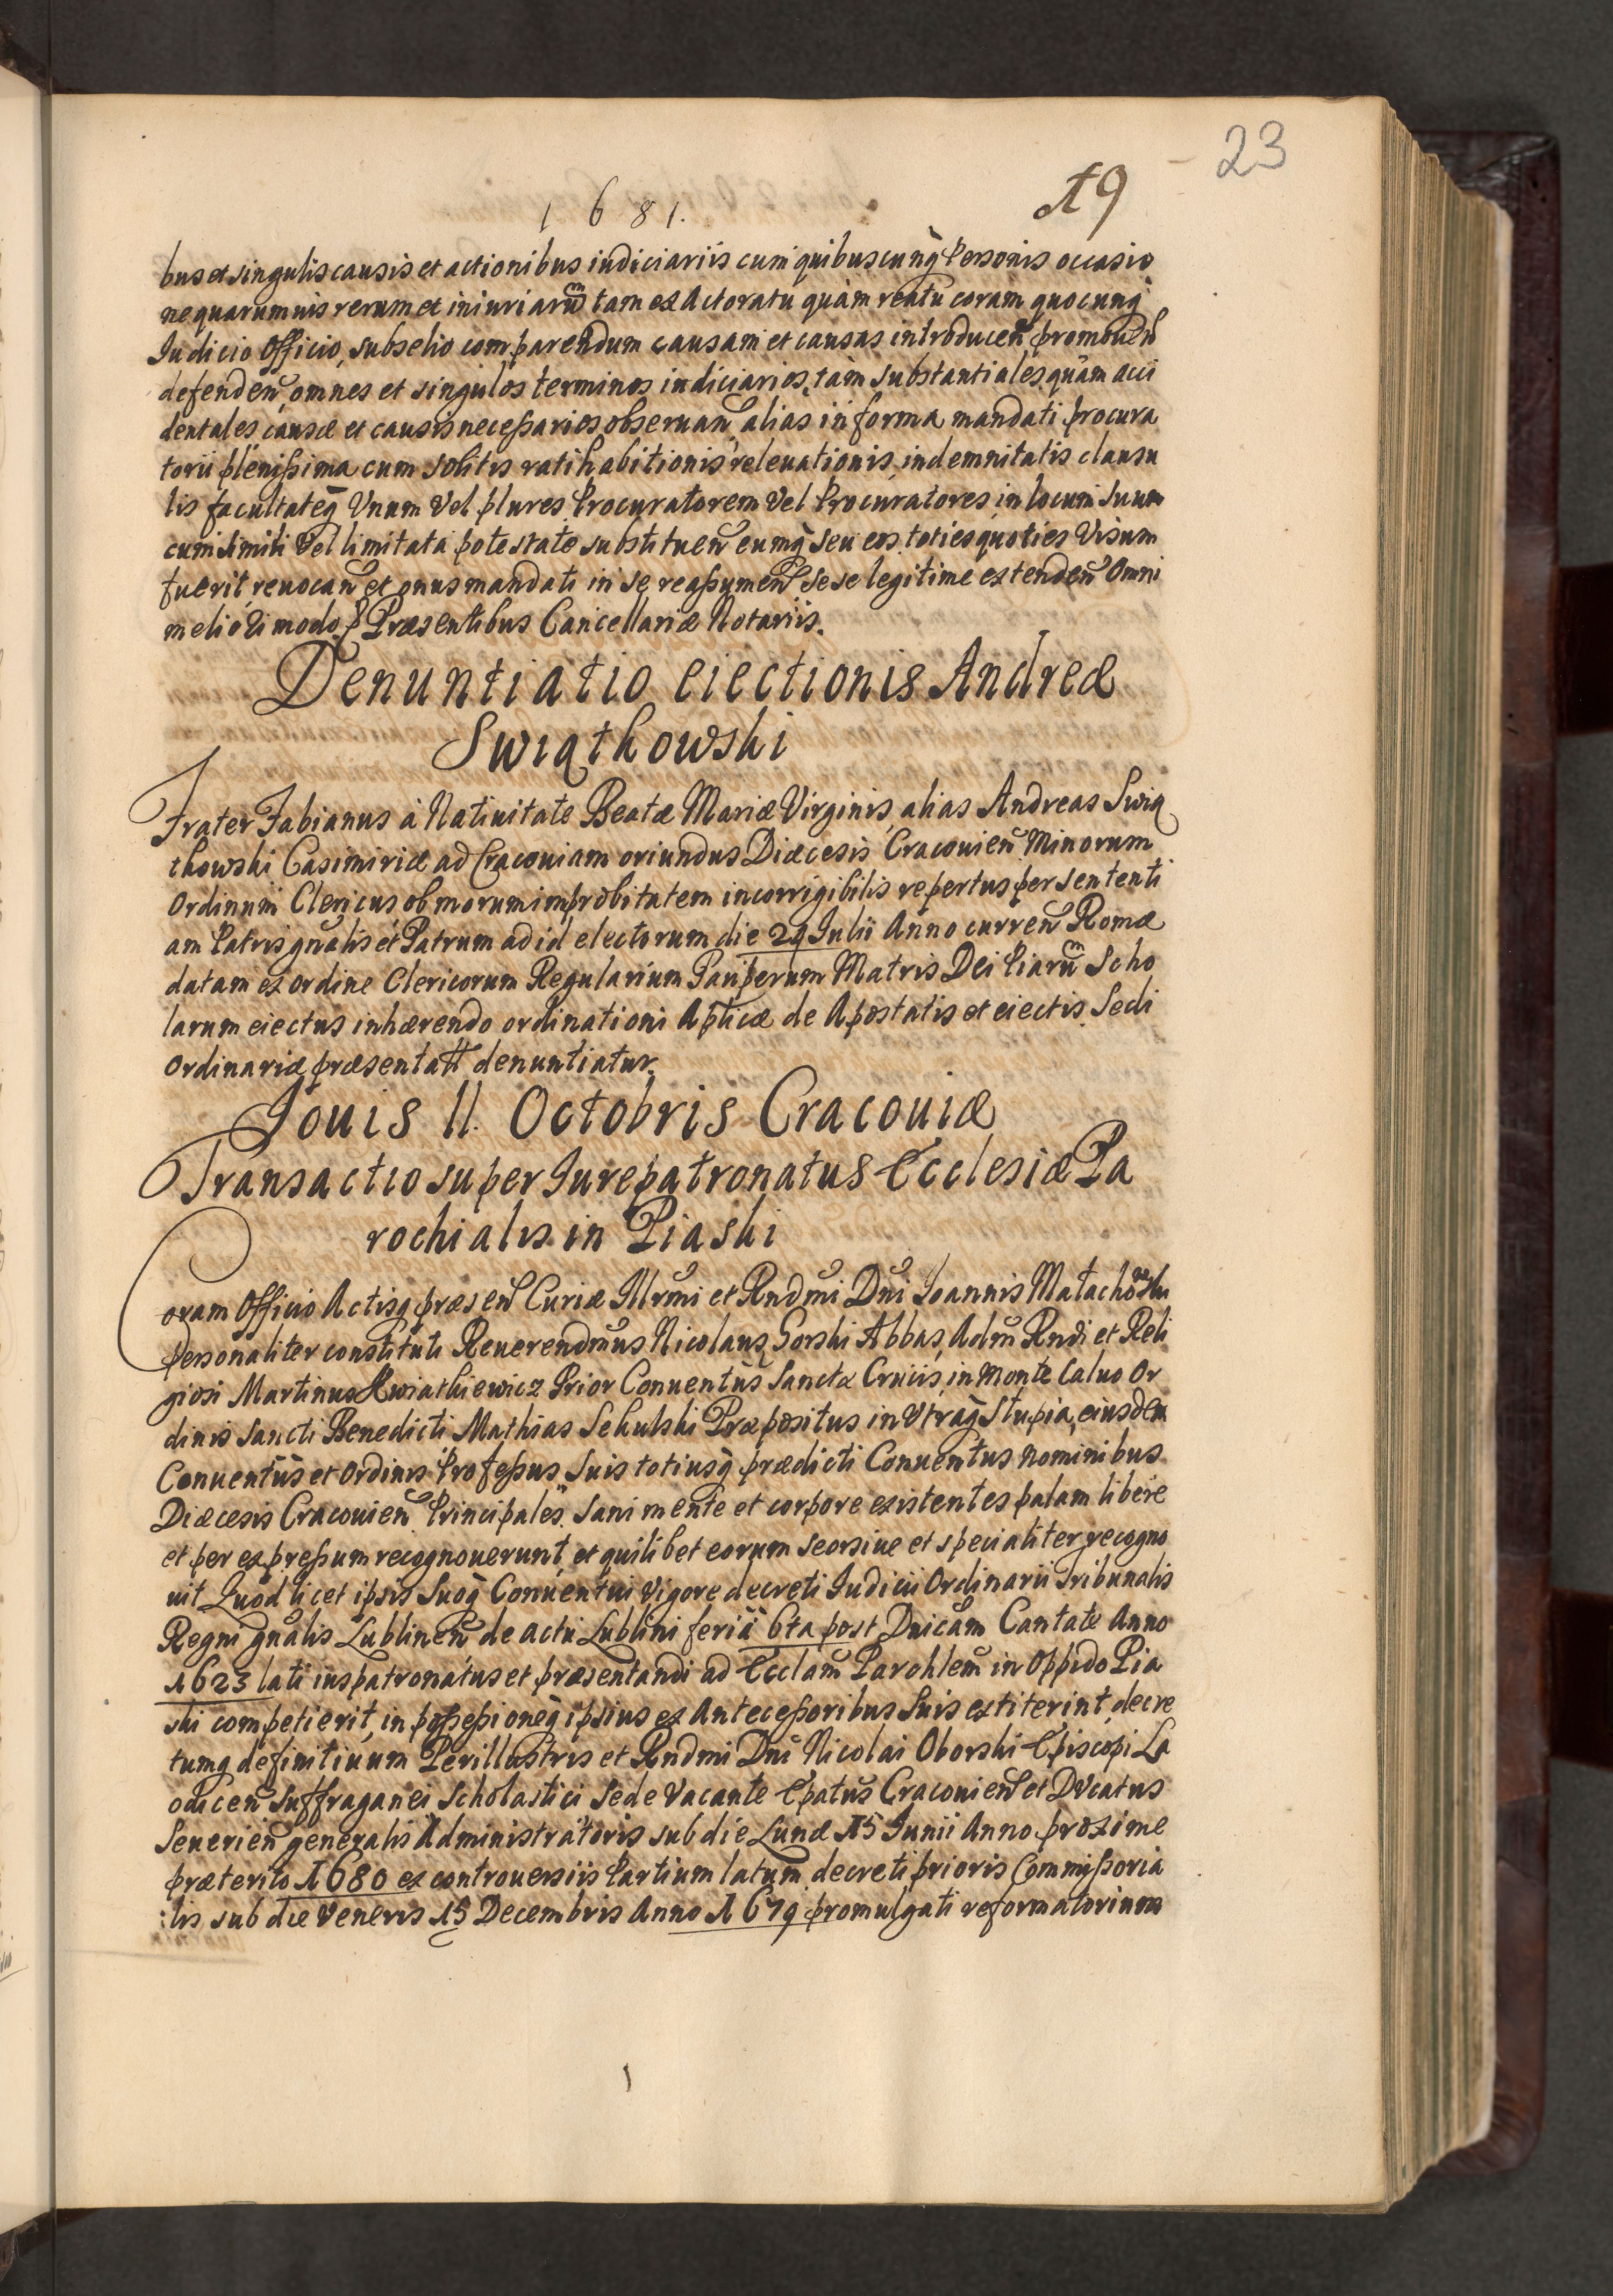 23
19
1681.
bus et singulis causis et actionibus iudiciariis cum quibuscunq̀ Personis occasio
ne quarumuis rerum et iniuriarũ tam ex Actoratu quàm reatu coram quocunq̀
Iudicio Officio, subselio comparendum causam et causas introducen̄ promouen̄
defenden̄, omnes et singulos terminos iudiciarios, tàm substantiales quàm acci
dentales, causæ et causis neceßarios obseruan̄, alias in forma mandati procura
torii pleniſsima cum solitis ratihabitionis releuationis indemnitatis clausu
lis facultateq̀ Vnum vel plures Procuratorem vel Procuratores in locum suum
cum simili vel limitata potestate substituen̄ eumq̀ seu eos toties quoties Visum
fuerit, reuocan̄ et onus mandati in se reaßumen̄ sese legitime extenden̄ Omni
meliori modo p Præsentibus Cancellariæ Notariis.
Denuntiatio eiectionis Andreæ
Swiąthowski
Frater Fabianus à Natiuitate Beatæ Mariæ Virginis, alias Andreas Swią
thowski Casimiriæ ad Cracouiam oriundus Diæcesis Cracouien̄ Minorum
Ordinum Clericus ob morum improbitatem incorrigibilis repertus per sententi
am Patris gn̄alis et Patrum ad id electorum die 29 Julii Anno curren̄ Romæ
datam ex ordine Clericorum Regularium Pauperum Matris Dei Piarũ Scho
larum eiectus inhærendo ordinationi Apl̄icæ de Apostatis et eiectis, Sedi
Ordinariæ præsentatt denuntiatur.
Iouis 11. Octobris Cracouiæ
Transactio super Iurepatronatus Ecclesiæ Pa
rochialis in Piaski
Coram Officio Actisq̀ præsen̄ Curiæ Illr̄mi et Rnd̄mi Dn̄i Ioannis Małachowski
personaliter constituti Reuerendm̄us Nicolaus Gorski Abbas, Adm̄ Rndi et Reli
giosi Martinus Kwiathiewicz Prior Conuentûs Sanctæ Crucis, in Monte Caluo Or
dinis Sancti Benedicti Mathias Sekulski Præpositus in Vtraq̀ Stupia, eiusdem
Conuentûs et Ordinis Profeßus suis totiusq̀ prædicti Conuentus nominibus
Diæcesis Cracouien̄ Principales, sani mente et corpore existentes palam libere
et per expreßum recognouerunt, et quilibet eorum seorsiue et specialiter recogno
uit Quòd licet ipsis suoq̀ Conuentui vigore decreti Iudicii Ordinarii Tribunalis
Regni gn̄alis Lublinen̄ de actu Lublini feriâ 6ta post Dn̄icam Cantate Anno
1623 lati iuspatronatus et præsentandi ad Eccl̄am Parchl̄em in Oppido Pia
ski competierit, in poßeßioneq̀ ipsius ex Anteceßoribus suis extiterint, decre
tumq̀ definitiuum Perillustris et Rndmi Dn̄i Nicolai Oborski Episcopi La
odicen̄ Suffraganei Scholastici Sede Vacante Ep̄atus Cracouien̄ et Ducatus
Seuerien̄ generalis Administratoris sub die Lunæ 15 Junii Anno proxime
præterito 1680 ex controuersiis Partium latum decreti prioris Commißoria
:lis sub die Veneris 15 Decembris Anno 1679 promulgati reformatorium